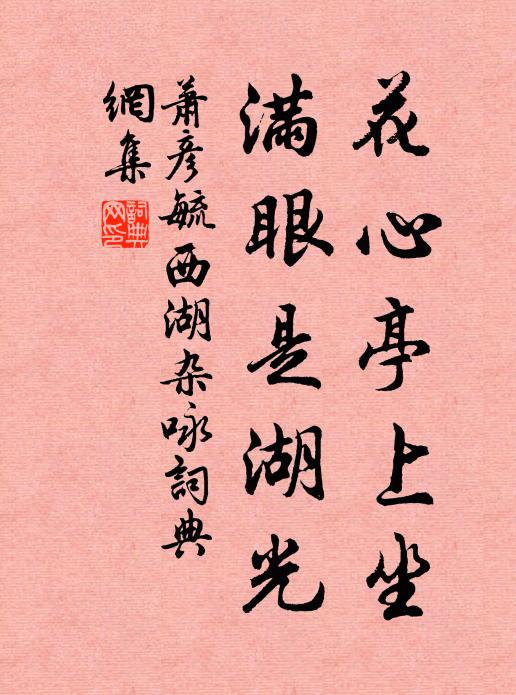 花心亭上坐
满眼是湖光
萧彦毓西湖杂咏詞典
網集
詞典
网印